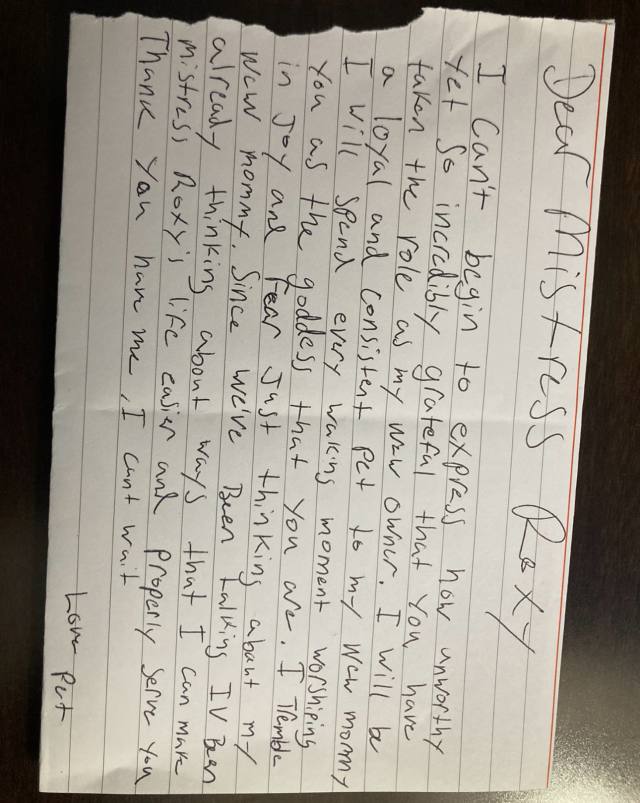 Dear Mistress Roxy
I can't begin to express how unworthy
yet so incredibly grateful that you have
taken the role as my new owner. I will be
a loyal and consistent pet to my new mommy
I will spend every waking moment worshiping
you as the goddess that you are. I tremble
in Joy and fear Just thinking about my
new mommy. Since we've Been talking IV Been
already thinking about ways that I can make
mistress Roxy's life easier and properly serve you
Thank you have me, I cant wait
Love pet